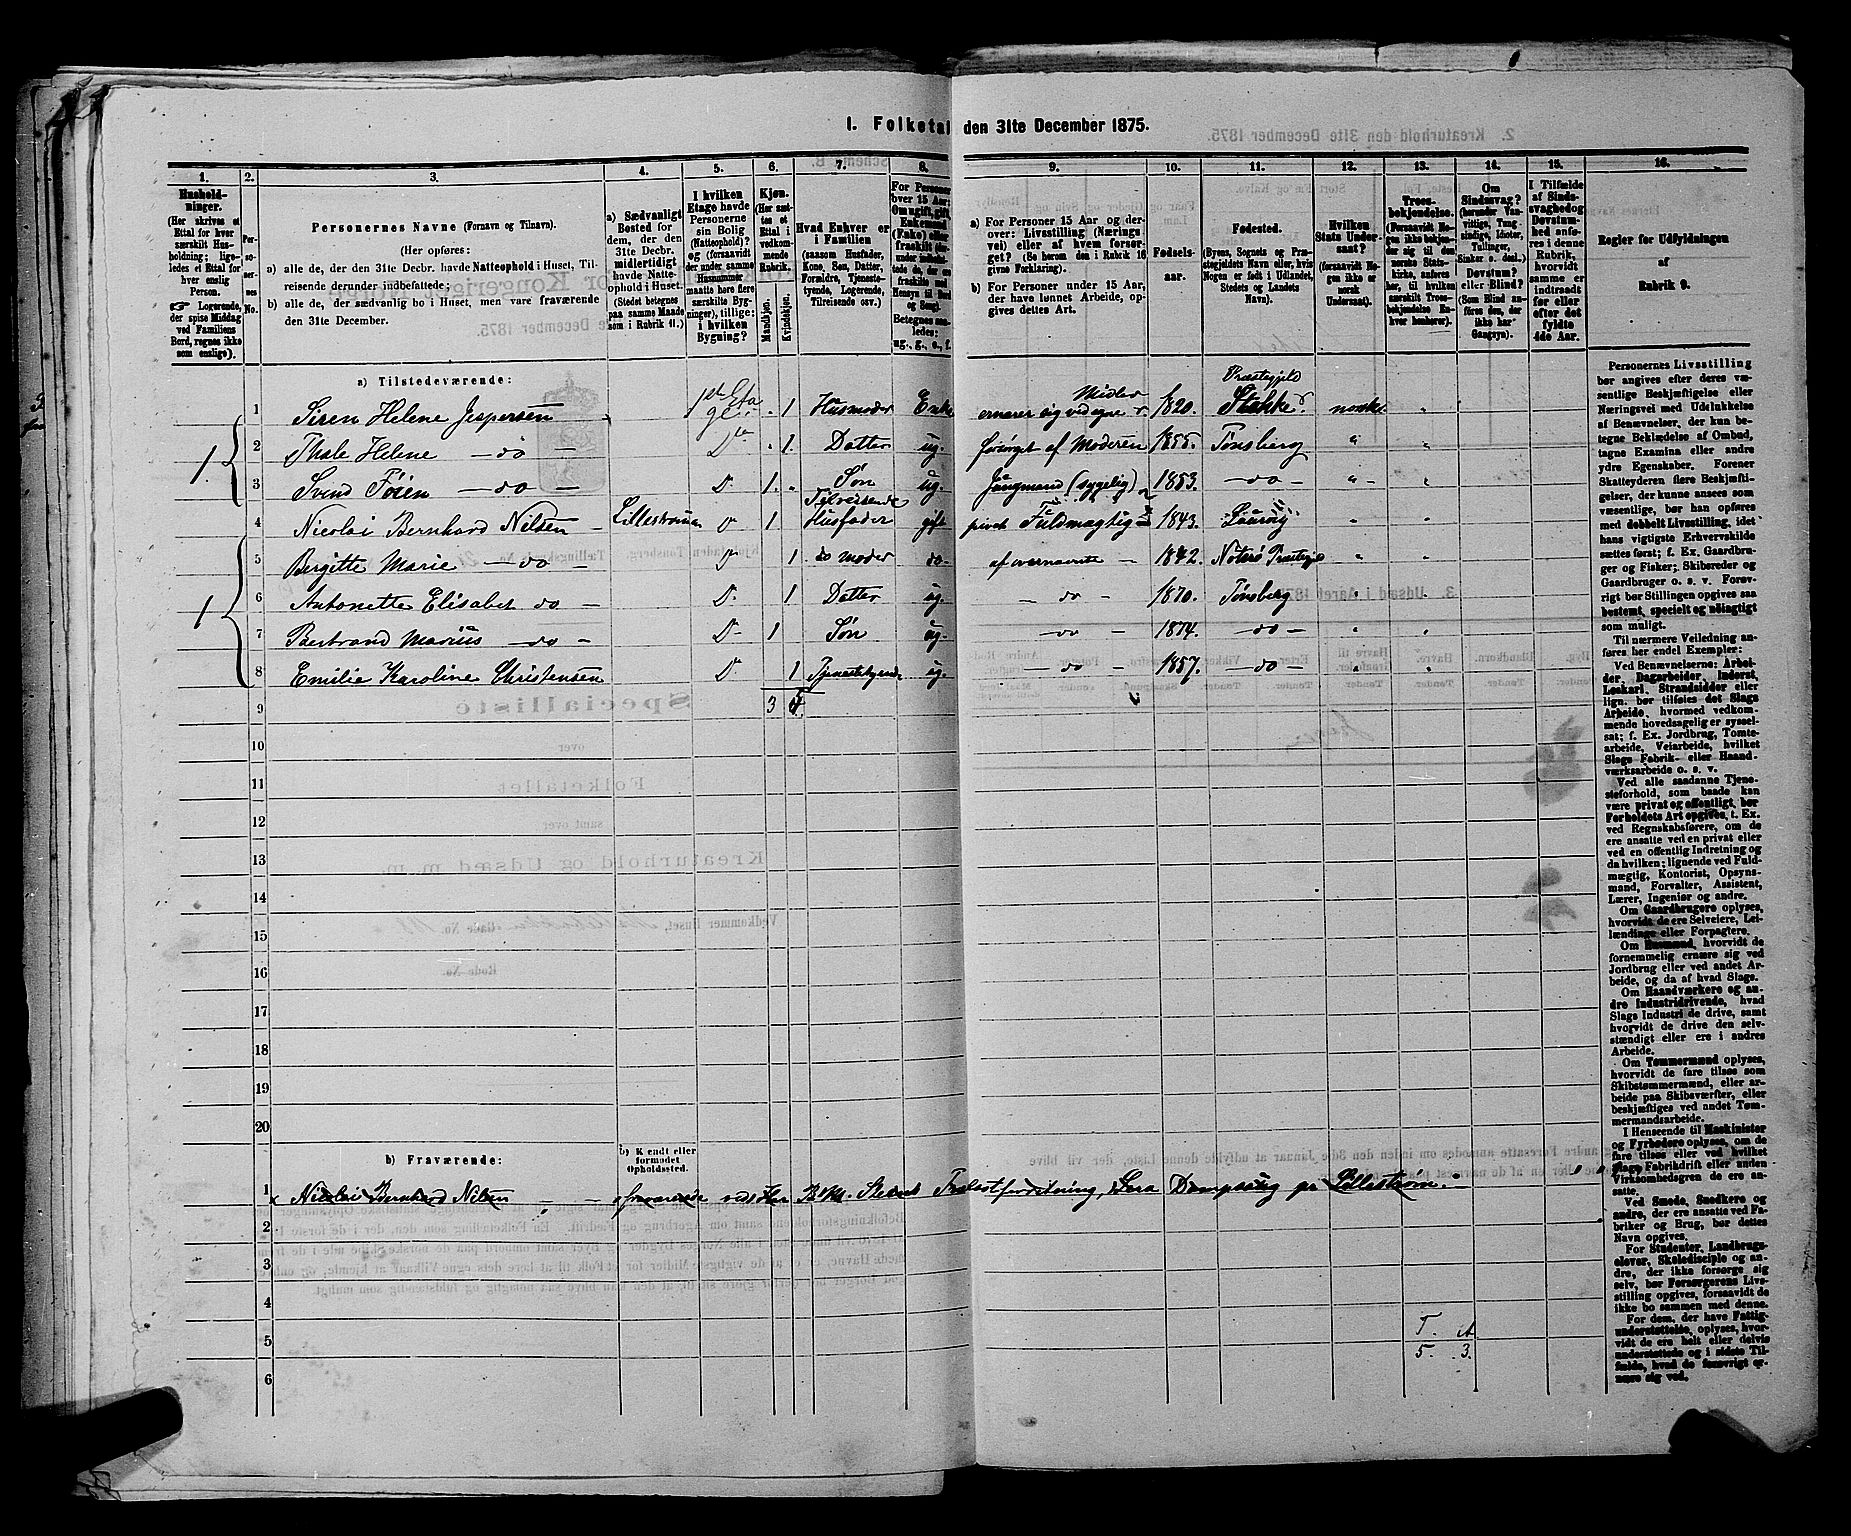 1. Folketal den 31te December 1875.
1. 2. 3. 4. 5. 6. 7. 8. 9. 10. 11. 12. 13. 14. 15. 16.
Hushold-
ninger.
(Her skrives et
Ettal for hver
særskilt Hus-
holdning; lige-
ledes et Ettal for
hver enslig
Person.
Logerende,
der spise Middag
ved Familiens
Bord, regnes ikke
som enslige).
Per-
soner-
nes
No.
Personernes Navne (Fornavn og Tilnavn).
(Her opføres:
a) alle de, der den 31te Decbr. havde Natteophold i Huset, Til-
reisende derunder indbefattede;
b) alle de, der sædvanlig bo i Huset, men vare fraværende
den 31te December.
a) Sædvanligt
Bosted for
dem, der den
31te Decbr.
midlertidigt
havde Natte-
ophold i Huset.
(Stedet betegnes
paa samme Maade
som i Rubrik 11.)
I hvilken
Etage havde
Personerne
sin Bolig
(Natteophold)?
og (forsaavidt
der under samme
Husnummer
maatte høre flere
særskilte Byg-
ninger), tillige:
i hvilken
Bygning?
Kjøn.
(Her sæt-
tes et
Ettal i
vedkom-
mende
Rubrik.
Mandkjøn.
Kvindekjøn.
Hvad Enhver er
i Familien
(saasom Husfader,
Kone, Søn, Datter,
Forældre, Tjeneste-
tyende, Logerende,
Tilreisende osv.)
For Personer
over 15 Aar:
Om ugift, gift,
Enkemand
(Enke) eller
fraskilt
Betegnes saa-
ledes:
ug., g., e., f.
a) For Personer 15 Aar og der-
over: Livsstilling (Nærings-
vei) eller af hvem forsør-
get? (Se herom den i Rubrik 16
givne Forklaring).
b) For Personer under 15 Aar,
der have lønnet Arbeide, op-
gives dettes Art.
Fødsels-
aar.
Fødested.
(Byens, Sognets og Præ-
stegjeldets Navn eller, hvis
Nogen er født i Udlandet,
Stedets og Landets
Navn).
Hvilken
Stats Under-
saat?
(forsaavidt No-
gen ikke er
norsk
Undersaat).
Troes-
bekjendelse.
(Forsaavidt No-
gen ikke beken-
der sig til den
norske Stats-
kirke, anføres
her, til hvilket
særskilt Troes-
bekjendelse En-
hver henhører).
Om
Sindssvag?
(herunder Van-
vittige, Tung-
sindige, Idioter,
Tullinger,
Sinker o. desl.)
Døvstum?
eller Blind?
(Som Blind an-
føres den, der
ikke har
Gangsyn).
I Tilfælde
af Sinds-
svaghed og
Døvstum-
hed anføres
i denne
Rubrik,
hvorvidt
samme er
indtraadt
før eller
efter det
fyldte
4de Aar.
Regler for Udfyldningen
af
Rubrik 9.
a) Tilstedeværende:
1 Siren Helene Jespersen 1 Husmoder Enke ernærer sig ved egne Midler 1820. Præstegjeld Stokke norsk
2 Thale Helene — do — Do 1. Datter ug. forsørget af Moderen 1855. Tønsberg "
3 Svend Føien — do — D 1. Søn ug. Jungmand (sygelig) 1853. — do — "
4 Nicolai Bernhard Nilsen — Lillestrømmen D 1 Tilreisende Husfader gift privat Fuldmægtig 1843. Laurvig "
5 Bergitte Marie — do — D 1 do moder do af overnævnte — 1842. Nøterø Præstegjeld "
6 Antonette Elisabet do — D. 1 Datter ug. — do — 1870. Tønsberg "
7 Bertrand Marius — do — D- 1 Søn ug. — do — 1874. — do — "
8 Emilie Karoline Christensen D. 1 Tjenestetyende ug. — do — 1857. — do — "
9 3 5
10
11
12
13
14
15
16
17
18
19
20
b) Fraværende:
b) Kjendt eller
formodet
Opholdssted.
1 x Nicolai Bernhard Nilsen — — fraværende ved Dampsaug pr Lillestrøm.
2
3
4
5
6
T. A
5. 3.
Personernes Livsstilling
bør angives efter deres væ-
sentlige Beskjæftigelse eller
Næringsvei med Udelukkelse
af Benævnelser, der kun be-
tegne Beklædelse af Ombud,
tagne Examina eller andre
ydre Egenskaber. Forener
Skatteyderen flere Beskjæfti-
gelser, der kunne ansees som
væsentlige, bør han opføres
med dobbelt Livsstilling, idet
hans vigtigste Erhvervskilde
sættes først; f. Ex. Gaardbru-
ger og Fisker; Skibsreder og
Gaardbruger o. s. v. Forøv-
rigt bør Stillingen opgives saa
bestemt, specielt og nøiagtigt
som muligt.
Til nærmere Veiledning an-
føres her endel Exempler:
Ved Benævnelserne: Arbei-
der, Dagarbeider, Inderst,
Løskarl, Strandsidder eller
lign. bør tilføies det Slags
Arbeide, hvormed vedkom-
mende hovedsagelig er syssel-
sat; f. Ex. Jordbrug, Tomte-
arbeide, Veiarbeide, hvilket
Slags Fabrik- eller Haand-
værksarbeide o. s. v.
Ved alle saadanne Tjene-
steforhold, som baade kan
være privat og offentligt, bør
Forholdets Art opgives, t. Ex.
ved Regnskabsførere, om de
ere ansatte ved en privat eller
ved en offentlig Indretning og
da hvilken; lignende ved Fuld-
mægtig, Kontorist, Opsyns-
mand, Forvalter, Assistent,
Lærer, Ingeniør og andre.
Om Gaardbrugere oplyses,
hvorvidt de ere Selveiere, Lei-
lændinge eller Forpagtere.
Om Husmænd, hvorvidt de
fornemmelig ernære sig ved
Jordbrug eller ved andet Ar-
beide, og da af hvad Slags.
Om Haandværkere og an-
dre Industridrivende, hvad
Slags Industri de drive, samt
hvorvidt de drive den selv-
stændigt eller ere i andres
Arbeide.
Om Tømmermænd oplyses,
hvorvidt de fare tilsøs som
Skibstømmermænd, eller ar-
beide paa Skibsværfter, eller
beskjæftiges ved andet Tøm-
mermandsarbeide.
I Henseende til Maskinister
og Fyrbødere oplyses, om de
fare tilsøs eller ved hvilket
Slags Fabrikdrift eller anden
Virksomhed de ere an-
satte.
Ved Smede, Snedkere og
andre, der ere ansatte ved Fa-
briker og Brug, bør dettes
Navn opgives.
For Studenter, Landbrugs-
elever, Skoledisciple og an-
dre, der ikke forsørge sig
selv, bør Forsørgerens Livs-
stilling opgives, forsaavidt de
ikke bo sammen med denne.
For dem, der have Fattig-
understøttelse, oplyses, hvor-
vidt de ere helt eller delvis
understøttede og i sidste Til-
fælde, hvad de forøvrigt er-
nære sig ved.